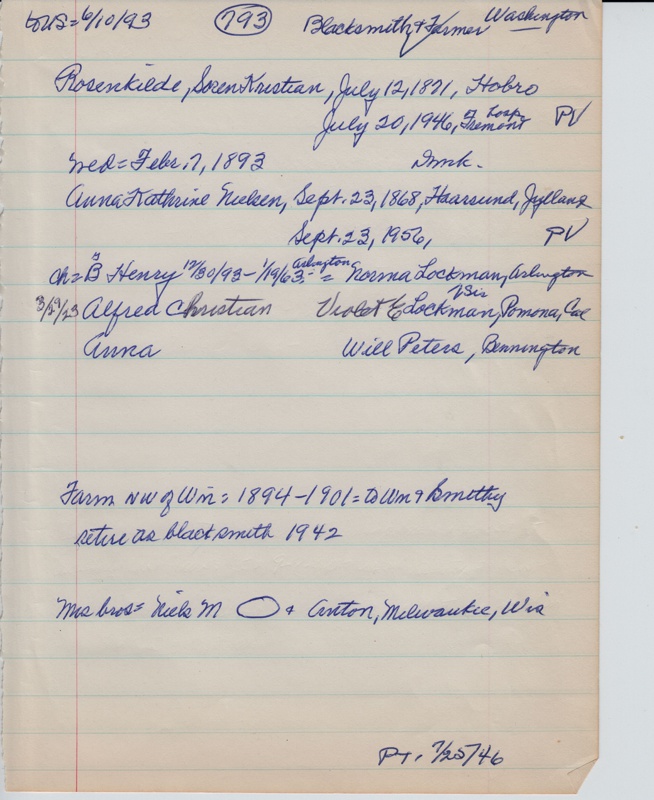 to US = 6/10/93 793 Blacksmith & Farmer Washington
Rosenkilde, Soren Kristian, July 12, 1871, Hobro
July 20, 1946, Fremont Hosp. PV
wed = Febr. 7, 1893 Dmk.
Anna Kathrine Nielsen, Sept. 23, 1868, Haarsund, Jylland
Sept. 23, 1956, PV
ch = B Henry 12/30/93 - 1/19/63 Arlington = Norma Lockman, Arlington
Alfred Christian Violet E Lockman, Pomona, Cal
Sis
Anna Will Peters, Bennington
Farm NW of Wn = 1894 - 1901 = to Wn & Bsmithy
retire as blacksmith 1942
Mrs bros = Niels M & Anton, Milwaukee, Wis
PT. 7/25/46